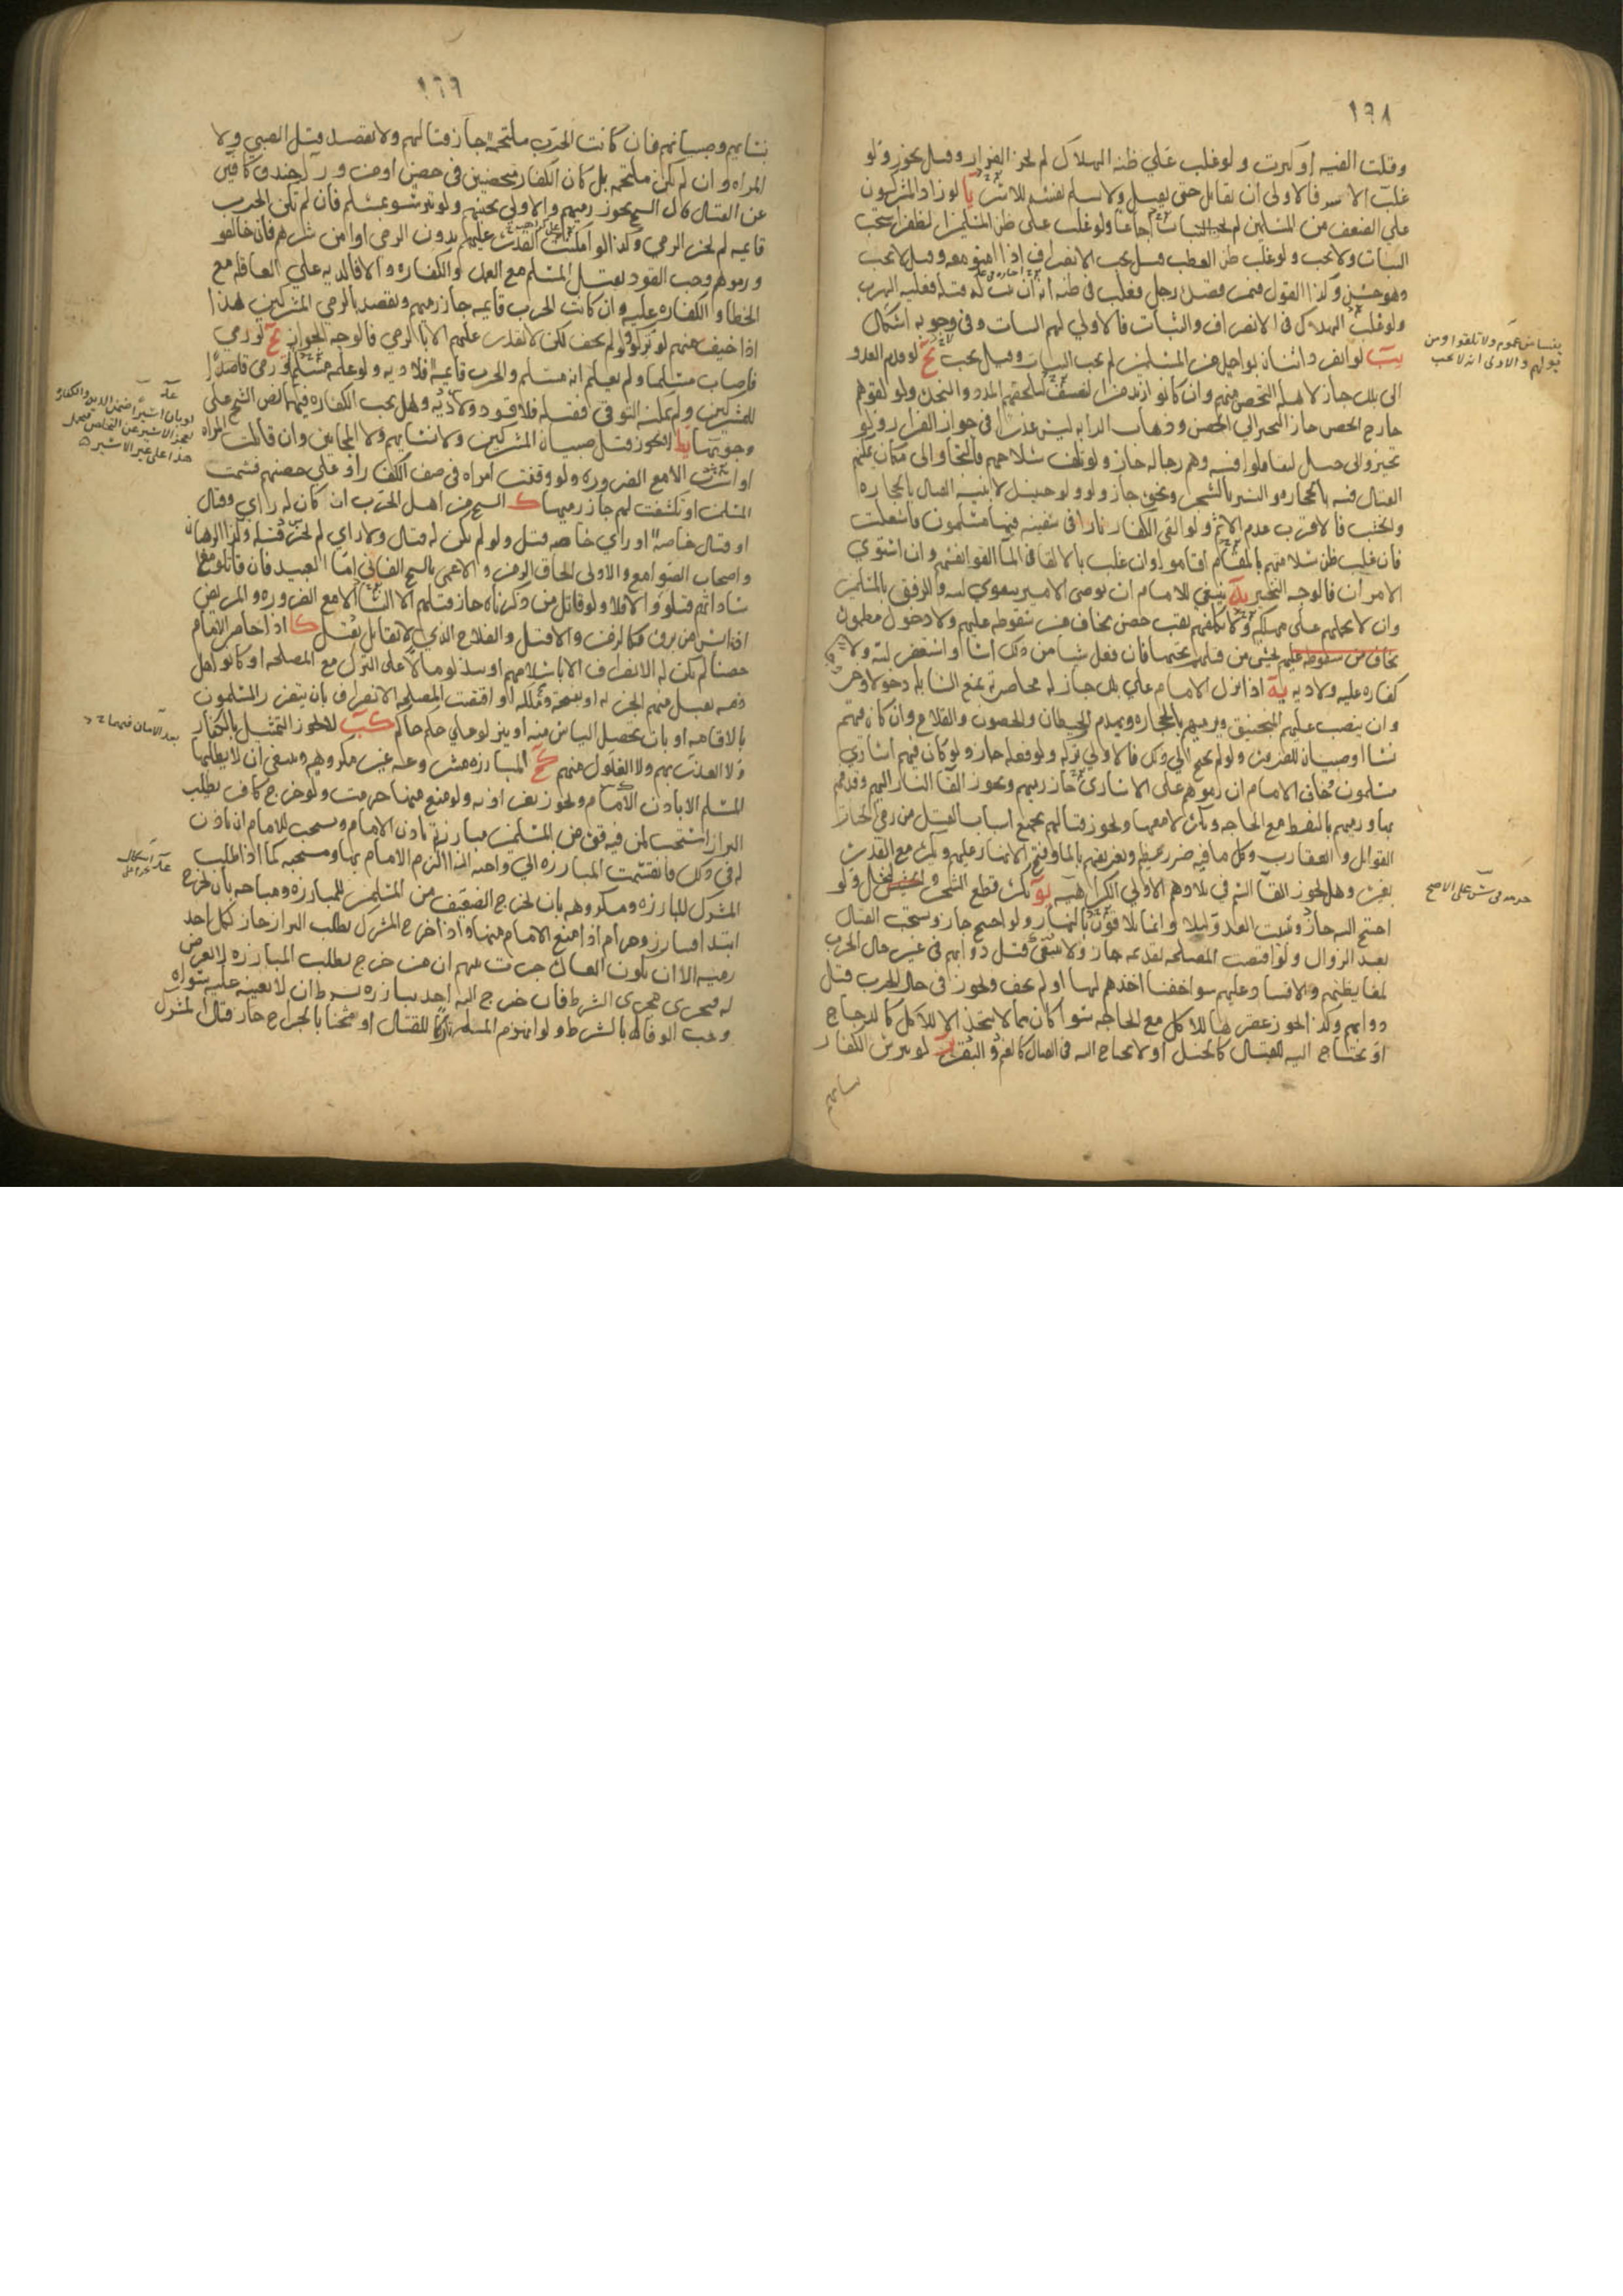 ١٦٨
وقلت الفئه او كبرت ولو غلب على ظنه الهلاك لم يجز الفرار وقيل يجوز ولو
غلب الاسر فالاولى ان يقاتل حتى يقتل ولا يسلم نفسه للاسر يا لو زاد المشركون
على الضعف من المسلمين لم يجب الثبات اجماعا ولو غلب على ظن المسلمين الظفر استحب
الثبات ولا يجب ولو غلب ظن العطب قيل يجب الانصراف اذا امنوا معه وقيل لا يجب
وهو حسن وكذا القول فيمن قصده رجل فغلب في ظنه انه ان ثبت له قتله فعليه الهرب
ولو غلب الهلاك في الانصراف والثبات فالاولى لهم الثبات وفي وجوبه اشكال
يب لو انفرد اثنان بواحد من المسلمين لم يجب الثبات وقيل يجب يج لو قدم العدو
الى بلد جاز لاهله التحصن منهم وان كانوا ازيد من الضعف ليلحقهم المدد والنجدة ولو لقوهم
خارج الحصن جاز التحيز الى الحصن وذهاب الدابه ليس عذرا في جواز الفرار ولو
تحيزوا الى جبل ليقاتلوا فيه وهم رجاله جاز ولو تلف سلاحهم فالتجأوا الى مكان يمكنهم
القتال فيه بالحجاره والتستر بالشجر ونحوه جاز ولو ولوا حينئذ لا بنيه القتال بالحجاره
والخشب فالاقرب عدم الاثم ولو القى الكفار نارا في سفينه فيها مسلمون فاشتعلت
فان غلب ظن سلامتهم بالمقام اقاموا وان غلب بالالقاء في الماء القوا انفسهم وان استوى
الامران فالوجه التخيير يد ينبغي للامام ان يوصي الامير بتقوى الله والرفق بالمسلمين
وان لا يحملهم على مهلكه ولا يكلفهم نقب حصن يخاف من سقوطه عليهم ولا دخول مطموره
يخاف من سقوطه عليهم يخشى من قتلهم تحتها فان فعل شيا من ذلك اساء واستغفر الله ولا
كفاره عليه ولا ديه يه اذا نزل الامام على بلد جاز له محاصرته بمنع السابله دخولا وخروجا
وان ينصب عليهم المنجنيق ويرميهم بالحجاره ويهدم الحيطان والحصون والقلاع وان كان فيهم
نساء وصبيان للضروره ولو لم يحتج الى ذلك فالاولى تركه ولو فعله جاز ولو كان فيهم اسارى
مسلمون وخاف الامام ان رموهم على الاسارى جاز رميهم ويجوز القاء النار اليهم وقذفهم
بها ورميهم بالنفط مع الحاجه ويكره لا معها ويجوز قتالهم بجميع اسباب القتل من رمي الحيات
القواتل والعقارب وكل ما فيه ضرر عظيم وتغريقهم بالماء وفتح الانهار عليهم ويكره مع القدره
بغيره وهل يجوز القاء السم في بلادهم الاولى الكراهيه يو يكره قطع الشجر والنخل ولو
احتيج اليه جاز وتبييت العدو ليلا وانما يلاقون بالنهار ولو احتيج جاز ويستحب القتال
بعد الزوال ولو اقتضت المصلحه تقديمه جاز ولا ينبغي قتل دوابهم في غير حال الحرب
لمغايظتهم والافساد عليهم سوا خفنا اخذهم لها او لم نخف ويجوز في حال الحرب قتل
دوابهم وكذا يجوز عقرها للاكل مع الحاجه سوا كان مما لا يتخذ الا للاكل كالدجاج
او يحتاج اليه للقتال كالخيل او لا يحتاج اليه في القتال كالغنم والبقر يز لو تترس الكفار
بنسايهم
بنسا من عموم ولا تلقوا ومن
يولهم والاولى انه لا يجب
حرمه في س على الاصح
١٦٩
بنسايهم وصبيانهم فان كانت الحرب ملتحمه جاز قتالهم ولا يقصد قتل الصبي ولا
المراه وان لم تكن ملتحمه بل كان الكفار متحصنين في حصن او من ورا خندق كافين
عن القتال قال الشيخ يجوز رميهم والاولى تجنبهم ولو تترسوا بمسلم فان لم تكن الحرب
قايمه لم يجز الرمي وكذا لو امكنت القدره عليهم بدون الرمي او امن شرهم فان خالفوا
ورموهم وجب القود بقتل المسلم مع العمد والكفاره والا فالديه على العاقله مع
الخطا والكفاره عليه وان كانت الحرب قايمه جاز رميهم ويقصد بالرمي المشركين هذا
اذا خيف منهم لو تركوا ولو لم يخف لكن لا يقدر عليهم الا بالرمي فالوجه الجواز يح لو رمى
فاصاب مسلما ولم يعلم انه مسلم والحرب قايمه فلا ديه ولو علمه مسلما ورمى قاصدا
للمشركين ولم يمكنه التوقي فقتله فلا قود ولا ديه وهل يجب الكفاره فيهما نص الشيخ على
وجوبها يط لا يجوز قتل صبيان المشركين ولا نسايهم ولا المجانين وان قاتلت المراه
او اسرت الا مع الضروره ولو وقفت امراه في صف الكفار او على حصنهم فشتمت
المسلمين او تكشفت لهم جاز رميها ك الشيخ من اهل الحرب ان كان له راي وقتال
او قتال خاصه او راي خاصه قتل ولو لم يكن له قتال ولا راي لم يجز قتله وكذا الرهبان
واصحاب الصوامع والاولى الحاق الزمن والاعمى بالشيخ الفاني اما العبيد فان قاتلوا مع
ساداتهم قتلوا والا فلا ولو قاتل من ذكرناه جاز قتلهم الا النساء الا مع الضروره والمريض
اذا ايس من برئه فكالزمن والا قتل والفلاح الذي لا يقاتل يقتل كا اذا حاصر الامام
حصنا لم يكن له الانصراف الا باسلامهم او يبذلوا مالا على الترك مع المصلحه او كانوا اهل
ذمه يقبل منهم الجزيه او بفتحه وتملكه او اقتضت المصلحه الانصراف بان يتضرر المسلمون
بالاقامه او بان يحصل الياس منه او ينزلوا على حكم حاكم كب لا يجوز التمثيل بالكفار
ولا الغدر بهم ولا الغلول منهم كج المبارزه مشروعه غير مكروهه وينبغي ان لا يطلبها
المسلم الا باذن الامام ويجوز بغير اذنه ولو منع منها حرمت ولو خرج كافر يطلب
البراز استحب لمن فيه قوه من المسلمين مبارزته باذن الامام ويستحب للامام ان ياذن
له في ذلك فانقسمت المبارزه الى واجبه اذا الزم الامام بها ومستحبه كما اذا طلب
المشرك المبارزه ومكروهه بان يخرج الضعيف من المسلمين للمبارزه ومباحه بان يخرج
ابتداء فيبارز وحرام اذا منع الامام منها واذا خرج المشرك يطلب البراز جاز لكل احد
رميه الا ان يكون العاده جرت بينهم ان من خرج يطلب المبارزه لا يعرض
له فيجري مجرى الشرط فان خرج اليه احد يبارزه بشرط ان لا يعينه عليه سواه
وجب الوفاء له بالشرط ولو انهزم المسلم تاركا للقتال او مثخنا بالجراح جاز قتال المشرك
لو بان اسيرا ضمن الديه والكفاره
لعجز الاسير عن التخلص فيحمل
هذا على غير الاسير
بعد الامان فيهما